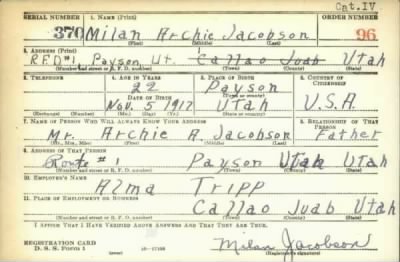 Cat. IV
SERIAL NUMBER 1. NAME (Print) ORDER NUMBER
370 Milan Archie Jacobson 96
(First) (Middle) (Last)
2. ADDRESS (Print)
RFD #1 Payson Ut. Callao Juab Utah
(Number and street or R. F. D. number) (Town) (County) (State)
3. TELEPHONE 4. AGE IN YEARS 5. PLACE OF BIRTH 6. COUNTRY OF CITIZENSHIP
22 Payson
DATE OF BIRTH (Town or county)
Nov. 5 1917 Utah U.S.A.
(Exchange) (Number) (Mo.) (Day) (Yr.) (State or country)
7. NAME OF PERSON WHO WILL ALWAYS KNOW YOUR ADDRESS 8. RELATIONSHIP OF THAT PERSON
Mr. Archie A. Jacobson Father
(Mr., Mrs., Miss) (First) (Middle) (Last)
9. ADDRESS OF THAT PERSON
Route #1 Payson Utah Utah
(Number and street or R. F. D. number) (Town) (County) (State)
10. EMPLOYER'S NAME
Alma Tripp
11. PLACE OF EMPLOYMENT OR BUSINESS
Callao Juab Utah
(Number and street or R. F. D. number) (Town) (County) (State)
I AFFIRM THAT I HAVE VERIFIED ABOVE ANSWERS AND THAT THEY ARE TRUE.
REGISTRATION CARD
D. S. S. Form 1
Milan Jacobson
(Registrant's signature)